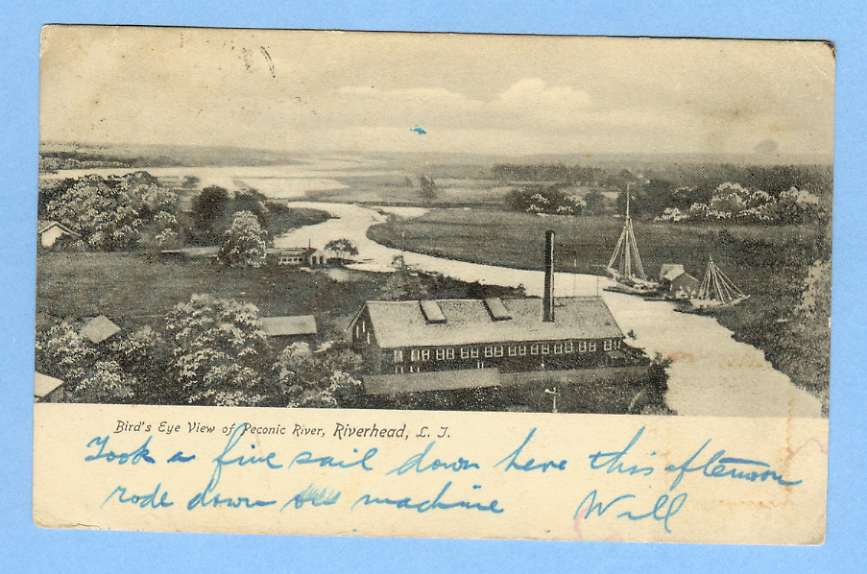 Bird's Eye View of Peconic River, Riverhead, L. I.
Took a fine sail down here this afternoon
rode down machine Will